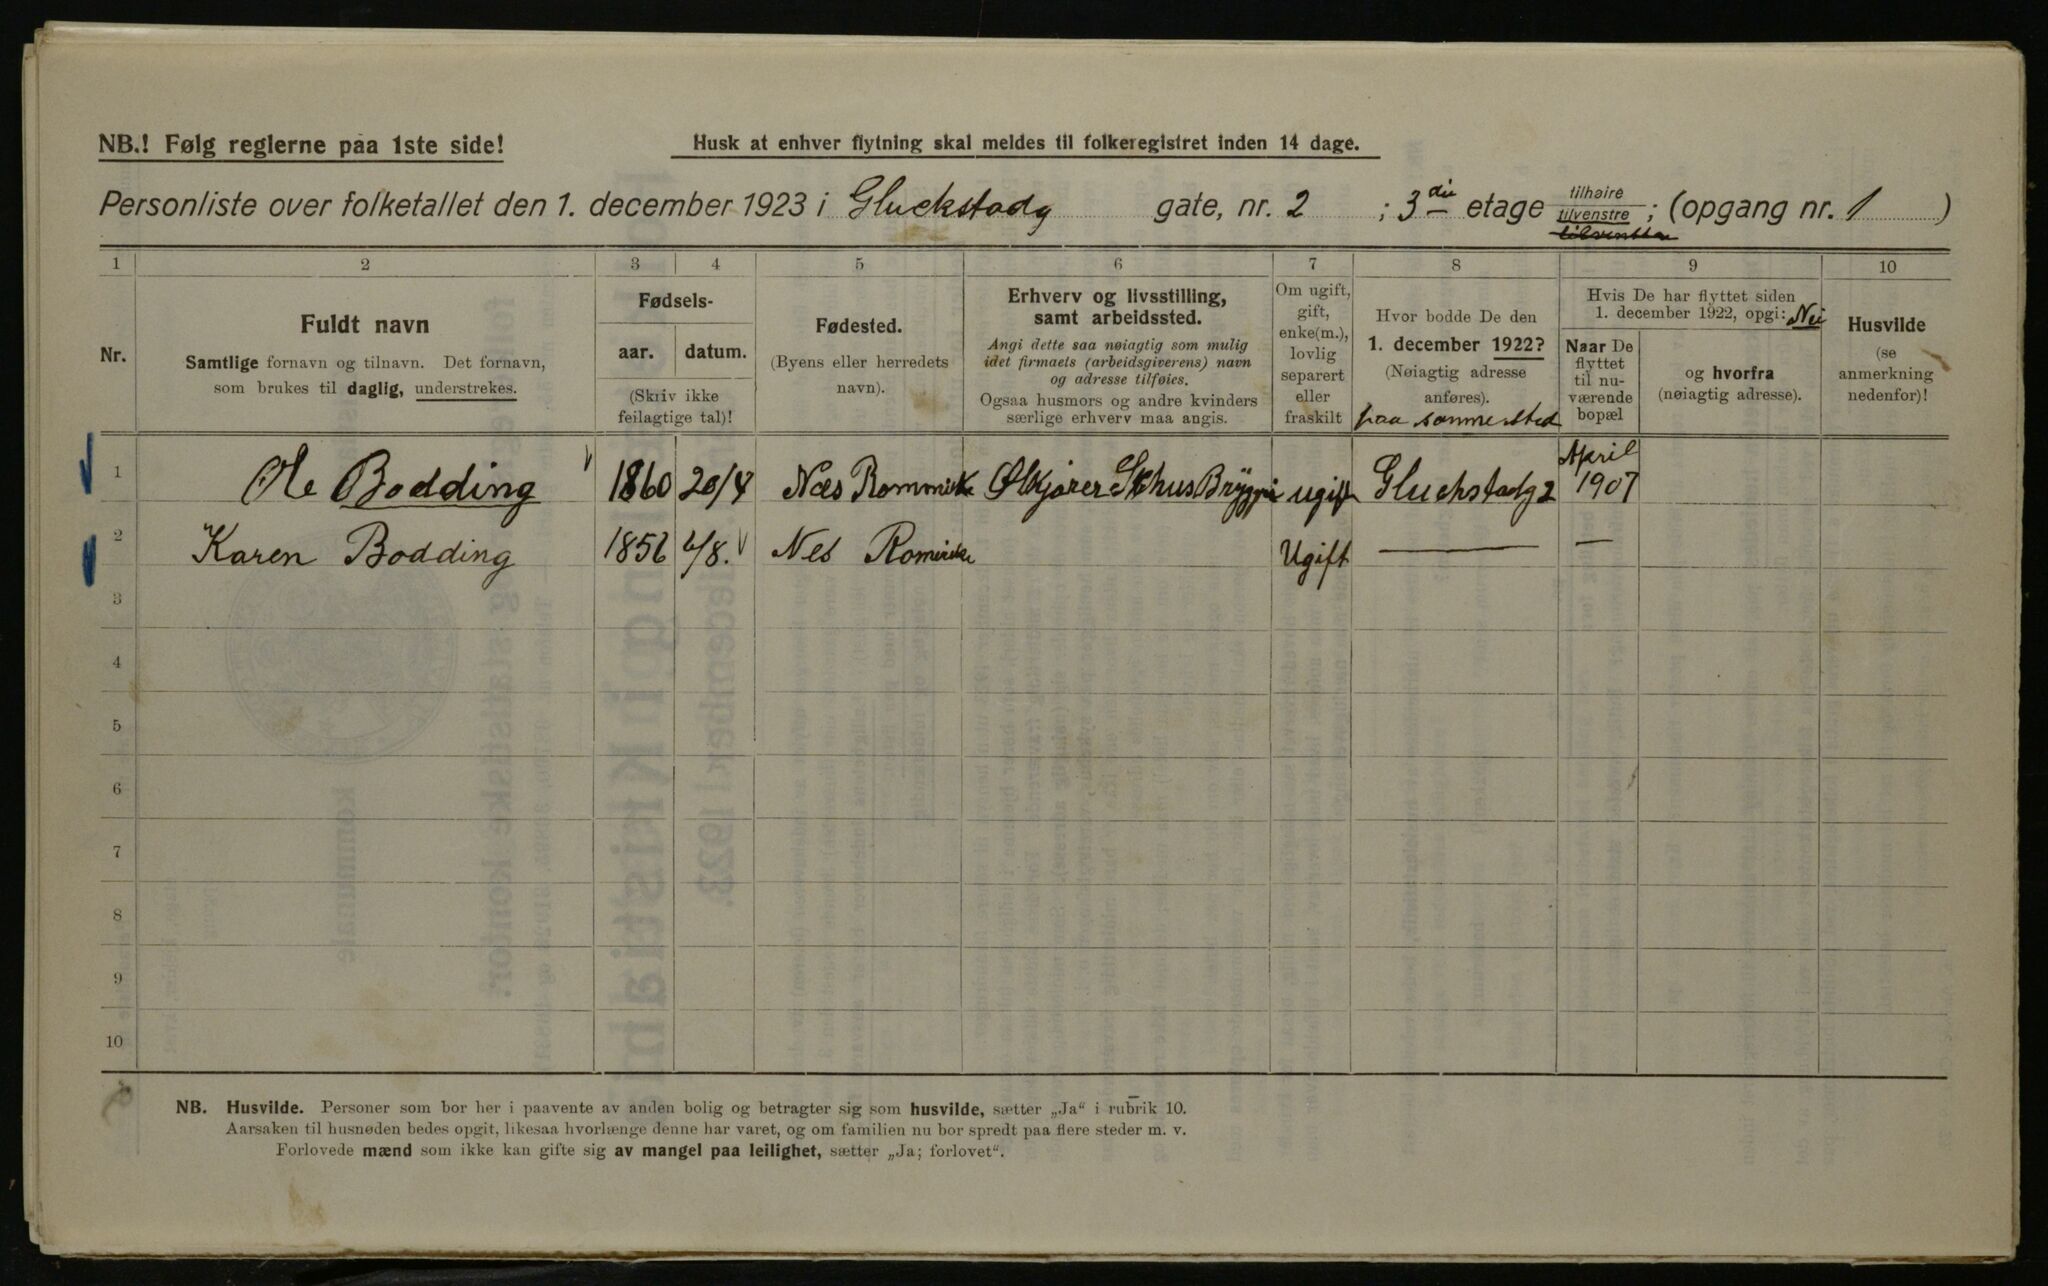 NB.! Følg reglerne paa 1ste side!
Husk at enhver flytning skal meldes til folkeregistret inden 14 dage.
Personliste over folketallet den 1. december 1923 i Gluckstadg gate, nr. 2 ; 3die etage tilhøire tilvenstre ; (opgang nr. 1 )
1 2 3 4 5 6 7 8 9 10
Nr.
Fuldt navn
Samtlige fornavn og tilnavn. Det fornavn,
som brukes til daglig, understrekes.
Fødsels-
aar. datum.
(Skriv ikke
feilagtige tal)!
Fødested.
(Byens eller herredets
navn).
Erhverv og livsstilling,
samt arbeidssted.
Angi dette saa nøiagtig som mulig
idet firmaets (arbeidsgiverens) navn
og adresse tilføies.
Ogsaa husmors og andre kvinders
særlige erhverv maa angis.
Om ugift,
gift,
enke(m.),
lovlig
separert
eller
fraskilt
Hvor bodde De den
1. december 1922?
(Nøiagtig adresse
anføres).
paa sammested
Hvis De har flyttet siden
1. december 1922, opgi: Nei
Naar De
flyttet
til nu-
værende
bopæl
og hvorfra
(nøiagtig adresse).
Husvilde
(se
anmerkning
nedenfor)!
1 Ole Bodding 1860 20/4 Næs Romerike Ølkjører Bryggri ugift Gluckstadg 2 April 1907
2 Karen Bodding 1856 4/8. Nes Romerike Ugift — —
3
4
5
6
7
8
9
10
NB. Husvilde. Personer som bor her i paavente av anden bolig og betragter sig som husvilde, sætter „Ja“ i rubrik 10.
Aarsaken til husnøden bedes opgit, likesaa hvorlænge denne har varet, og om familien nu bor spredt paa flere steder m. v.
Forlovede mænd som ikke kan gifte sig av mangel paa leilighet, sætter „Ja; forlovet“.